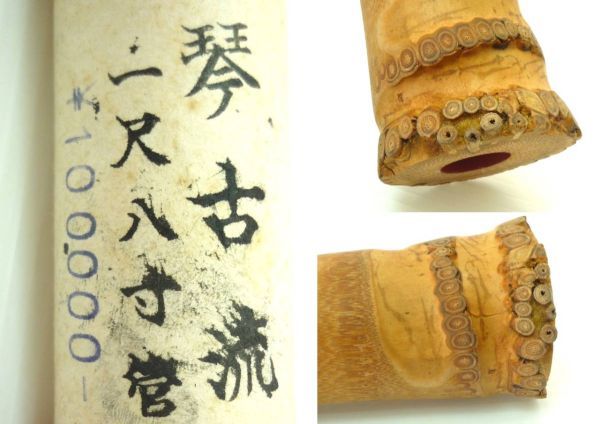 琴古流
一尺八寸管
¥100000-